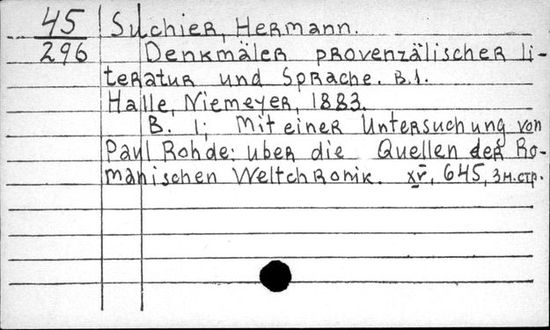 45 Suchier, Hermann.
296 Denkmäler provenzälischer li-
teratur und Sprache. B.1.
Halle, Niemeyer, 1883.
B. 1; Mit einer Untersuchung von
Paul Rohde: uber die Quellen der Ro-
mänischen Weltchronik. XV, 645, 3н.стр.